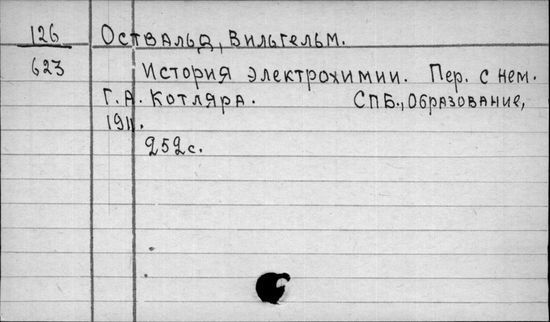 126 Оствальд, Вильгельм.
623 История электрохимии. Пер. с нем.
Г.А. Котляра. СПБ., Образование,
1911.
252 с.